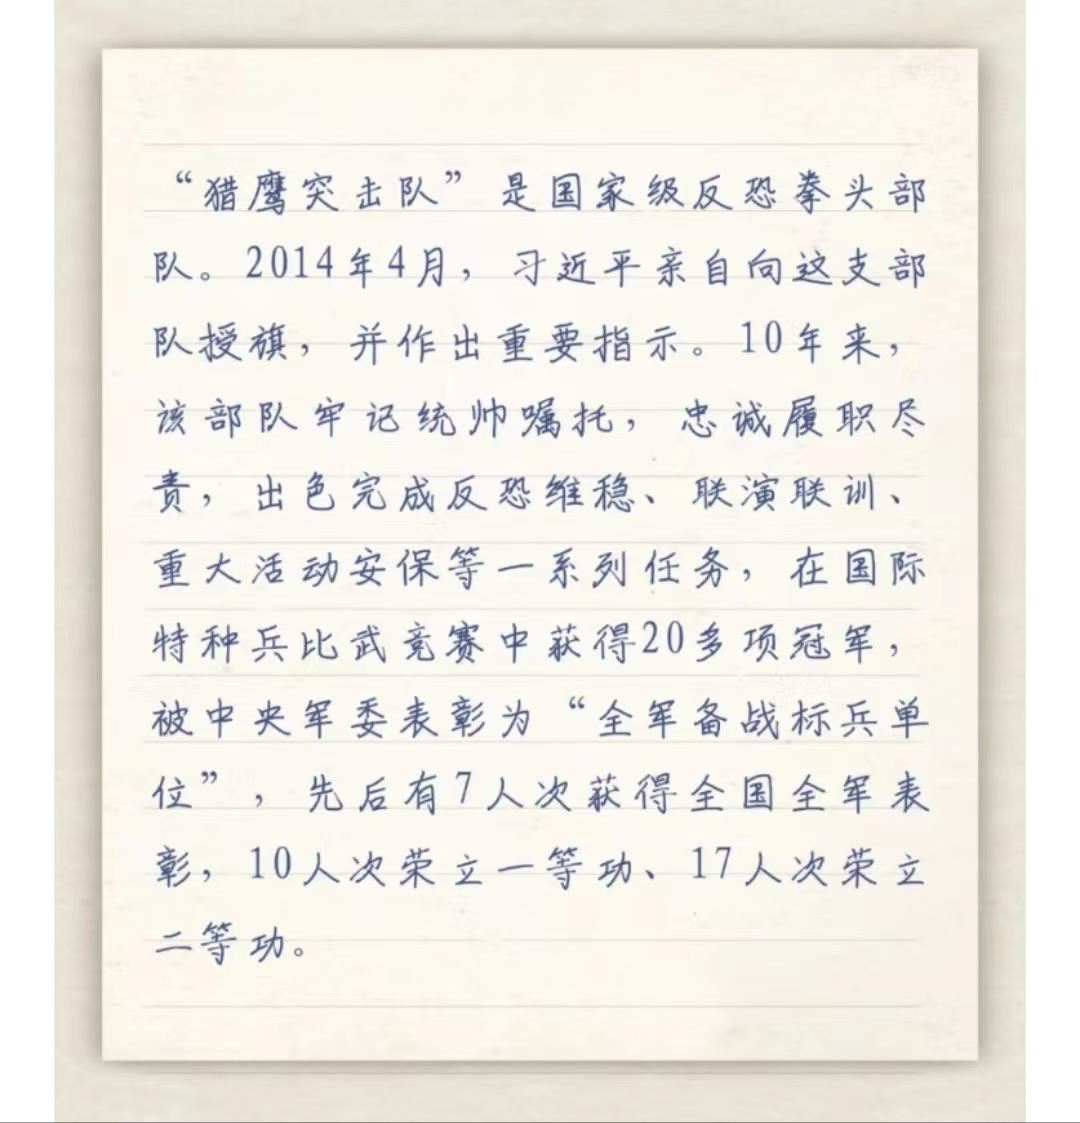 “猎鹰突击队”是国家级反恐拳头部
队。2014年4月，习近平亲自向这支部
队授旗，并作出重要指示。10年来，
该部队牢记统帅嘱托，忠诚履职尽
责，出色完成反恐维稳、联演联训、
重大活动安保等一系列任务，在国际
特种兵比武竞赛中获得20多项冠军，
被中央军委表彰为“全军备战标兵单
位”，先后有7人次获得全国全军表
彰，10人次荣立一等功、17人次荣立
二等功。